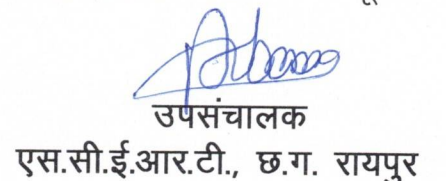 उपसंचालक
एस.सी.ई.आर.टी., छ.ग. रायपुर